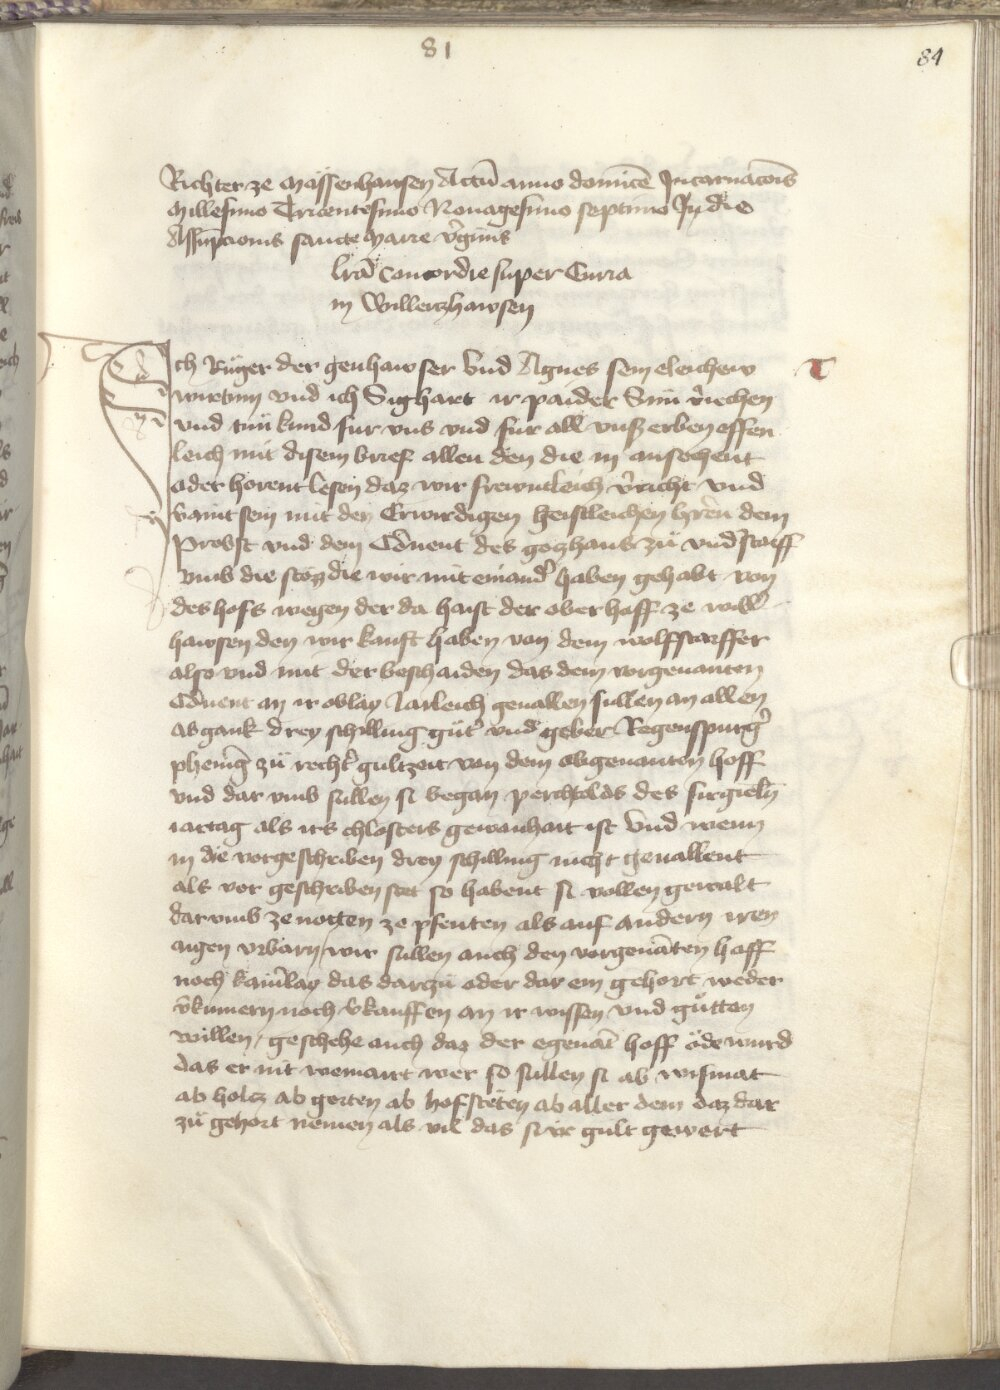 81
84
Richter ze Massenhausen Actū anno domīce Incarnacōis
Millesimo Tricentesimo Nonagesimo septimo In die
Assūpcionis sancte Marie v̄ginis
lr̄a Concordie super Curia
in Willertzhawsen
Ich Rüger der genhawser Vnd Agnes sein eleichew
wirtinn vnd ich Sighart ir paider Sun v̄iechen
vnd tün kund fur vns vnd fur all vnsz erben offen
leich mit disem brief allen den die in ansechent
oder horent lesen daz wir frewntleich v̄richt vnd
v̄aint sein mit den Erwirdigen Geistleichen hr̄en dem
Probst vnd dem Cōuent des gozhaus zü vnd̄storff
vmb die stözz die wir mit einand̄ haben gehabt von
des hofs wegen der da haist der ober hoff ze will̄
hawsen den wir kauft haben von dem wolfstorffer
also vnd mit der beschaiden das dem vorgenanten
Cōuent an ir oblay Jarleich geuallen sullen an allen
abgank drey schilling gūt̄ vnd geber Regenspurḡ
phenīg zü recht̄ gultzeit von dem obgenanten hoff
vnd dar vmb sullen si began perchtolds des sirgieln̄
iartag als irs chlosters gewonhait ist Vnd wenn
in die vorgeschriben drey schilling nicht geuallent
als vor geschriben stet so habent si vollen gewalt
dar vmb ze notten ze pfenten als auf andern iren
aigen vrbarn wir sullen auch den vorgenāten hoff
noch kain̄lay das darzu oder dar ein gehort weder
v̄kumern noch v̄kauffen an ir wissen vnd gütten
willen / geschehe auch daz der egenāt hoff öde wurd
das er nit wemairt wer so sullen si ab wismat
ab holtz ab gerten ab hofsteten ab aller dem daz dar
zü gehort nemen als vil das si ir gult gewert